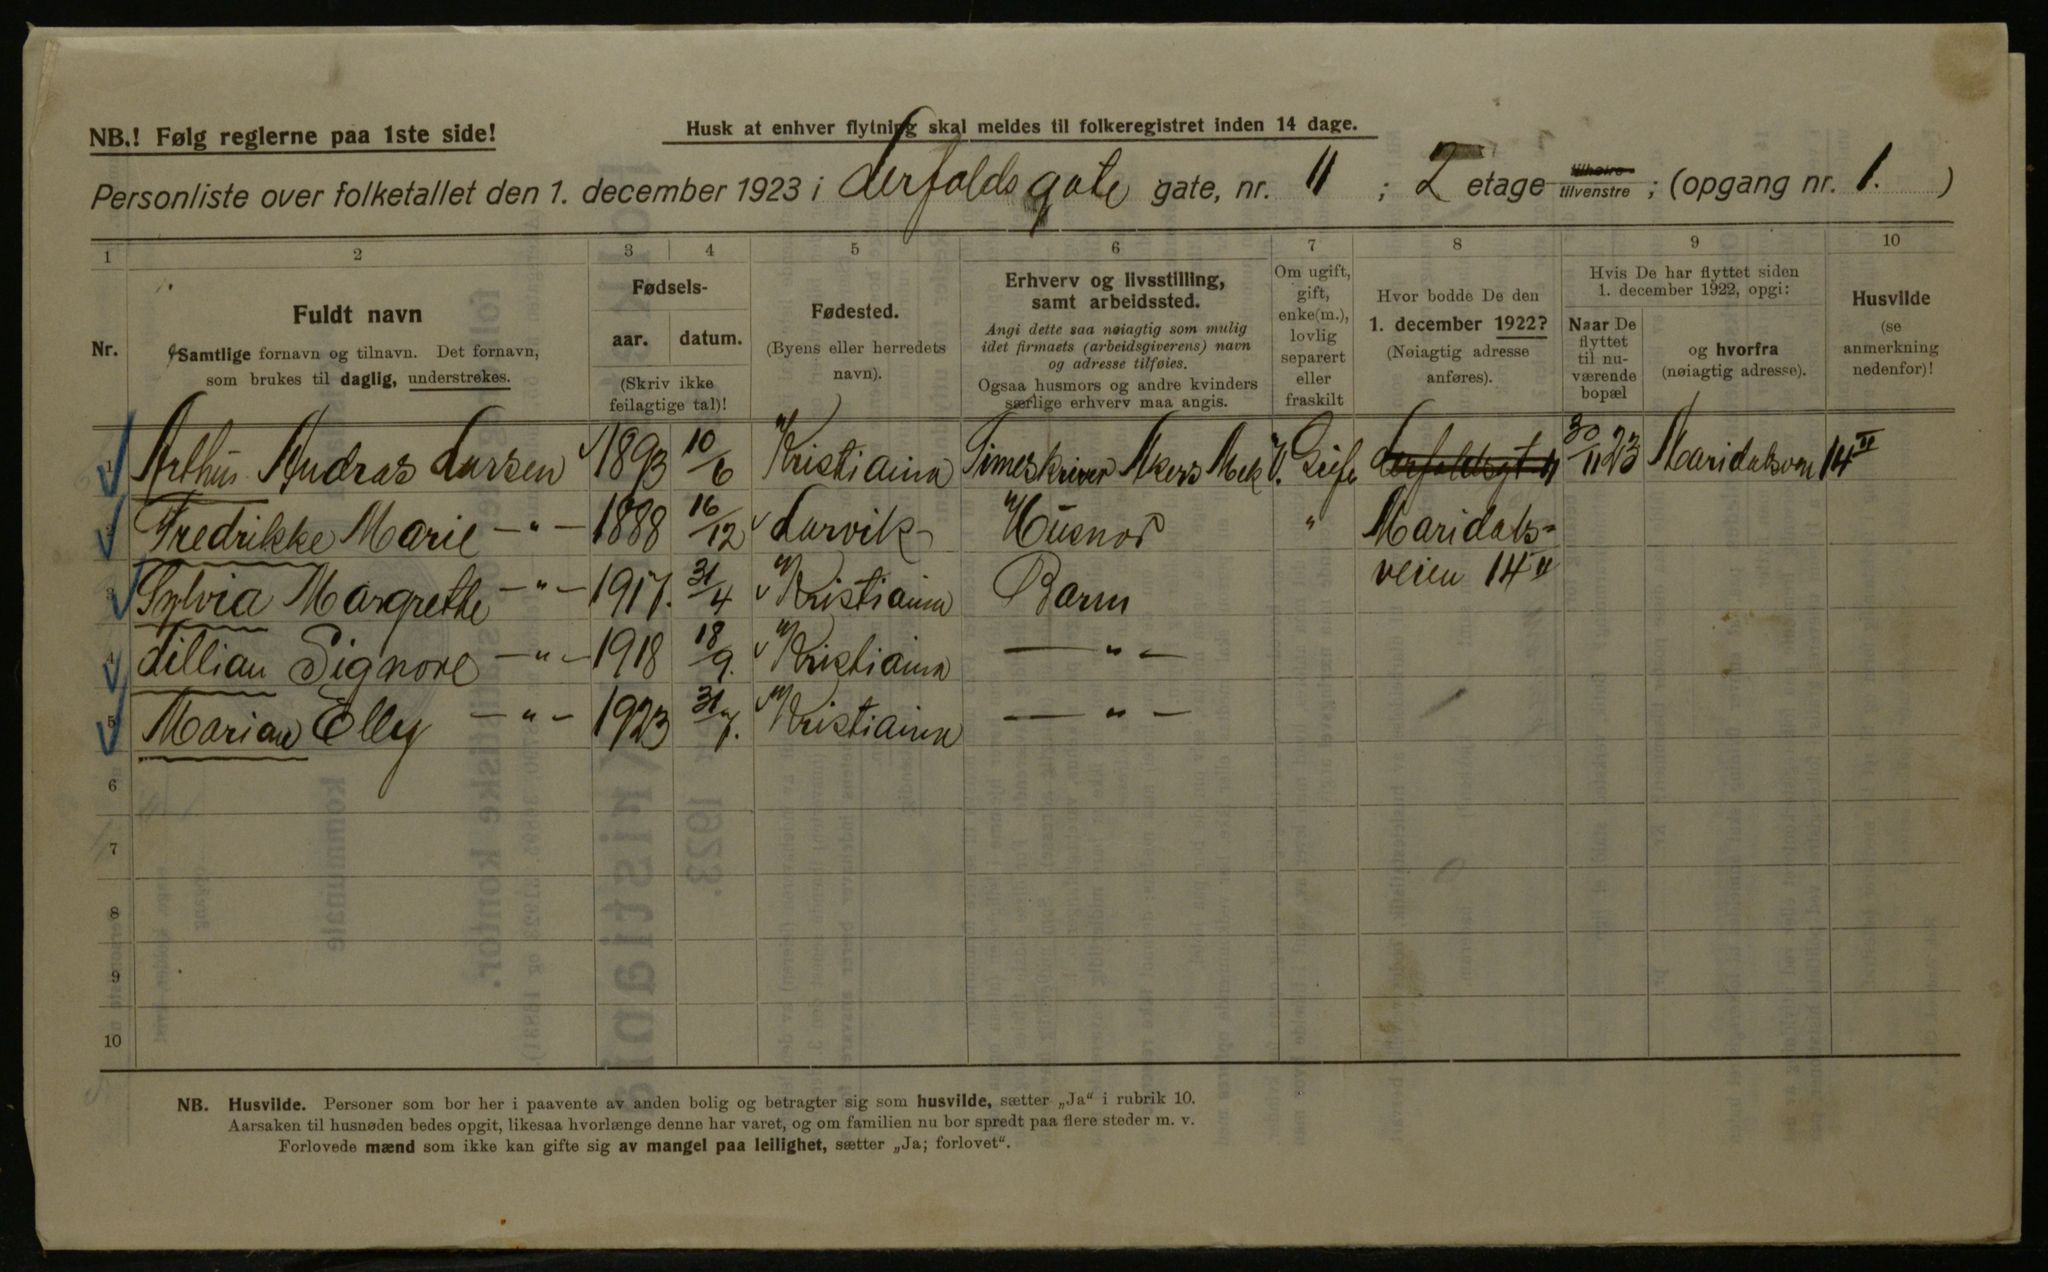 NB.! Følg reglerne paa 1ste side!
Husk at enhver flytning skal meldes til folkeregistret inden 14 dage.
Personliste over folketallet den 1. december 1923 i Lerfaldsgate gate, nr. 11 ; 2 etage tilhøire tilvenstre ; (opgang nr. 1. )
1 2 3 4 5 6 7 8 9 10
Nr.
Fuldt navn
(Samtlige fornavn og tilnavn. Det fornavn,
som brukes til daglig, understrekes.
Fødsels-
aar. datum.
(Skriv ikke
feilagtige tal)!
Fødested.
(Byens eller herredets
navn).
Erhverv og livsstilling,
samt arbeidssted.
Angi dette saa nøiagtig som mulig
idet firmaets (arbeidsgiverens) navn
og adresse tilføies.
Ogsaa husmors og andre kvinders
særlige erhverv maa angis.
Om ugift,
gift,
enke(m.),
lovlig
separert
eller
fraskilt
Hvor bodde De den
1. december 1922?
(Nøiagtig adresse
anføres).
Hvis De har flyttet siden
1. december 1922, opgi:
Naar De
flyttet
til nu-
værende
bopæl
og hvorfra
(nøiagtig adresse).
Husvilde
(se
anmerkning
nedenfor)!
1 Arthur Andras Larsen 1893 10/6 Kristiania Timeskriver Akers Mek V. Gift Lerfaldsgt 11 30/11 23 Maridalsven 14 II
2 Fredrikke Marie —"— 1888 16/12 Larvik Husmor " Maridals-
veien 14 II
3 Sylvia Margrethe —"— 1917. 31/4 Kristiania Barn
4 Lillian Signore —"— 1918 18/9. Kristiania —"—
5 Marian Elly —"— 1923 31/7. Kristiania —"—
6
7
8
9
10
NB. Husvilde. Personer som bor her i paavente av anden bolig og betragter sig som husvilde, sætter „Ja“ i rubrik 10.
Aarsaken til husnøden bedes opgit, likesaa hvorlænge denne har varet, og om familien nu bor spredt paa flere steder m. v.
Forlovede mænd som ikke kan gifte sig av mangel paa leilighet, sætter „Ja; forlovet“.